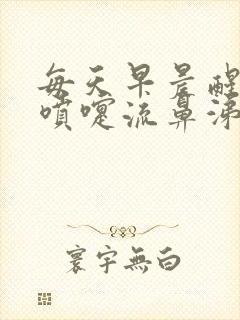 每天早晨醒
噴嚏流鼻涕
寰宇無白